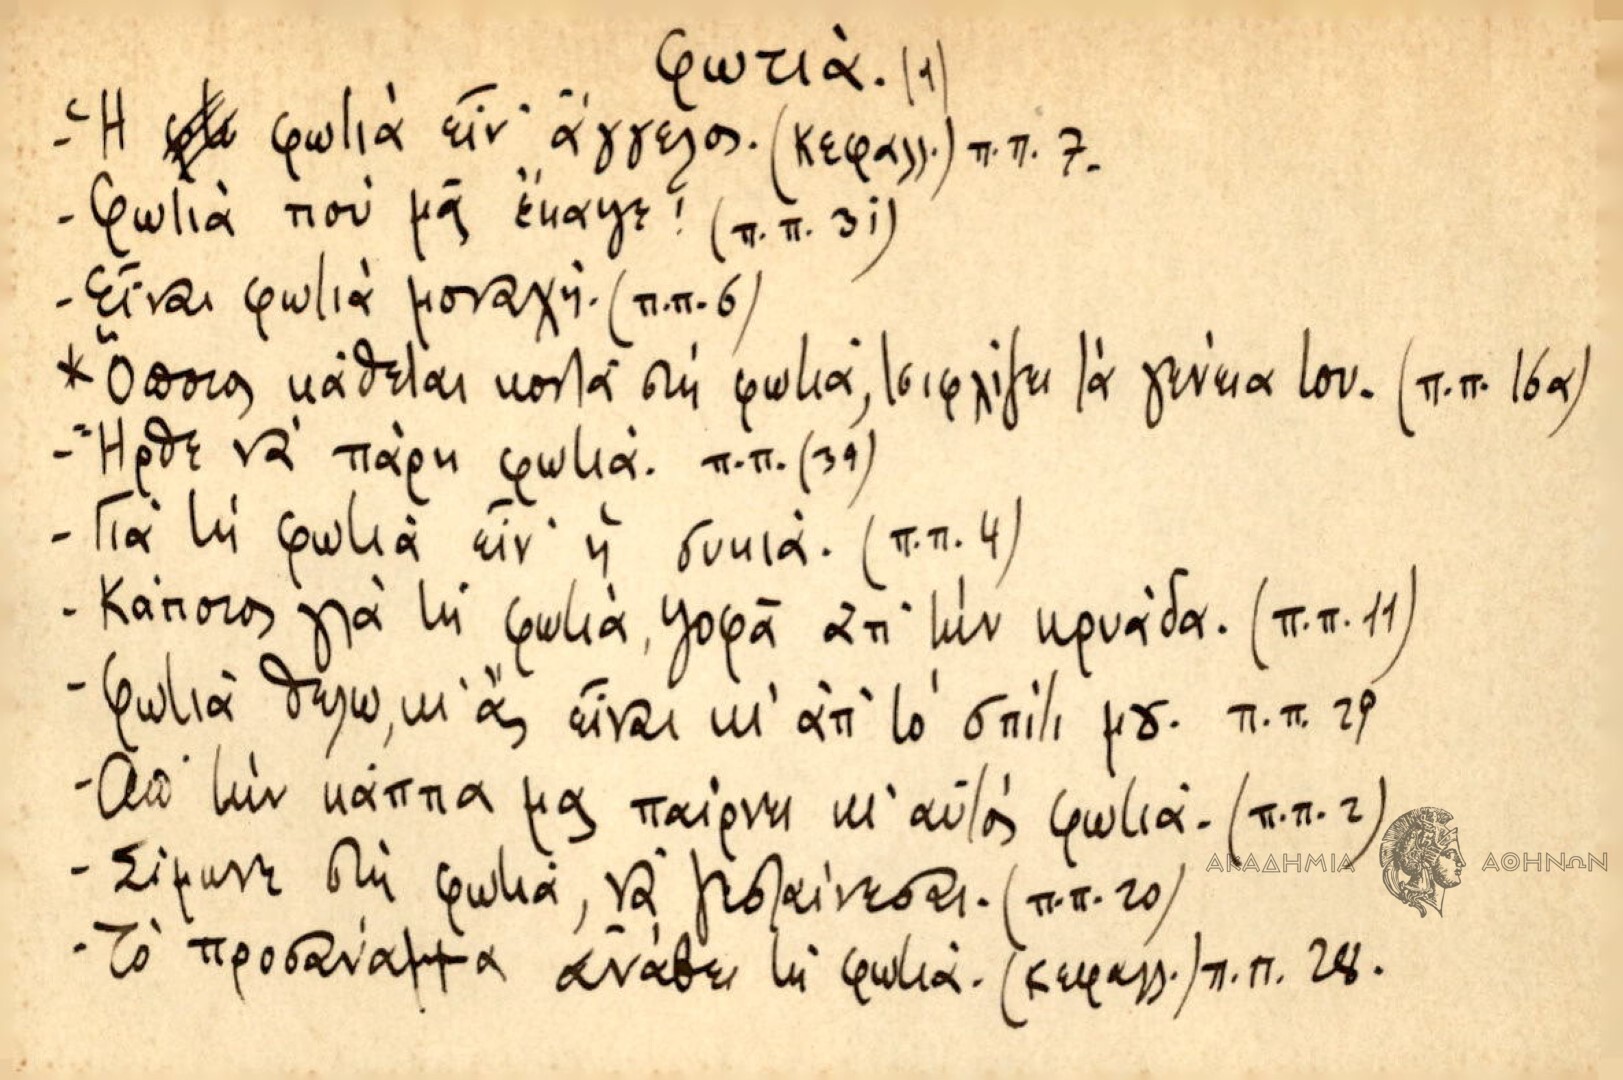 φωτιά. (1)
- Ἡ φωτιά εἶν' ἄγγελος. (Κεφαλλ.) π.π. 7.
- Φωτιά πού μᾶς ἔκαψε! (π.π. 31)
- Εἶναι φωτιά μοναχή. (π.π. 6)
* Ὅποιος κάθεται κοντά στή φωτιά, τσιφλίζει τά γένεια του. (π.π. 16α)
- Ἦρθε νά πάρη φωτιά. π.π. (39)
- Γιά τή φωτιά εἶν' ἡ συκιά. (π.π. 4)
- Κάποιος γιά τή φωτιά, ψοφᾶ ἀπ' τήν κρυάδα. (π.π. 11)
- Φωτιά θέλω, κι' ἄς εἶναι κι' ἀπ' τό σπίτι μου. π.π. 29
- Ἀπ' τήν κάππα μας παίρνει κι' αὐτός φωτιά. (π.π. 2)
- Σίμωνε στή φωτιά, νά ζεσταίνεσαι. (π.π. 20)
- Τό προσάναμμα ἀνάβει τή φωτιά. (Κεφαλλ.) π.π. 28.
ΑΚΑΔΗΜΙΑ ΑΘΗΝΩΝ